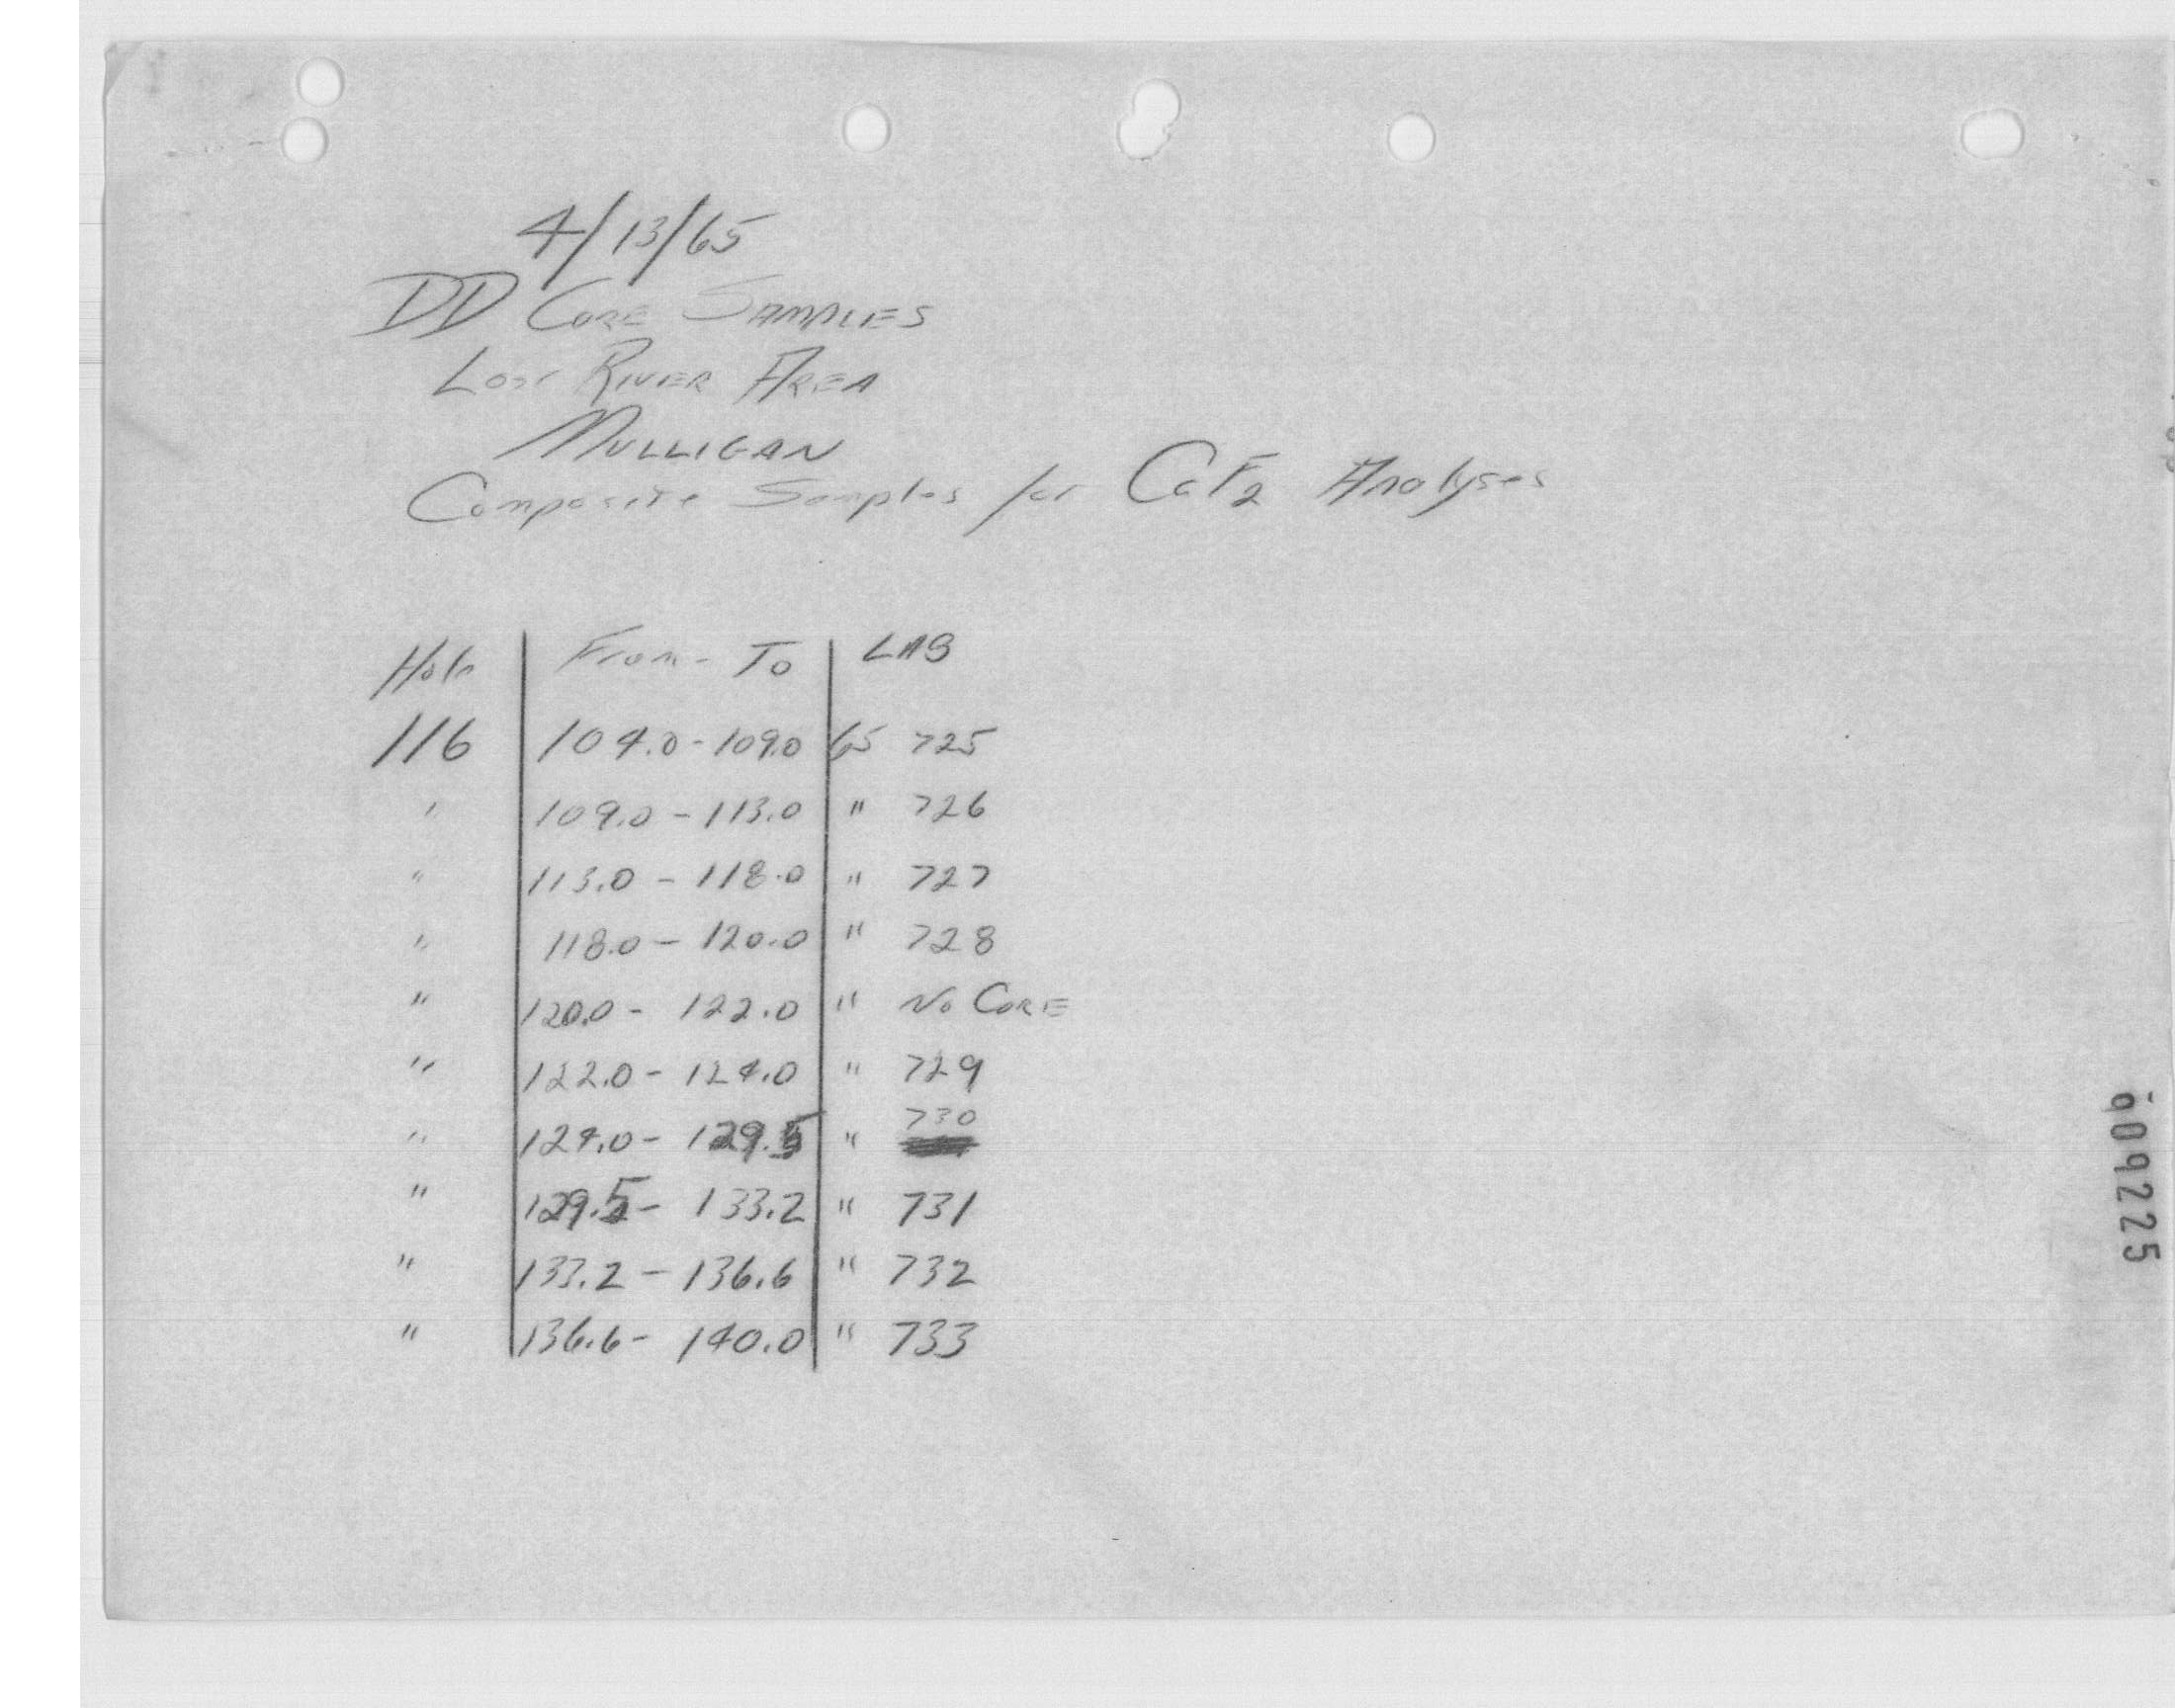 4/13/65
DD CORE SAMPLES
LOST RIVER AREA
MULLIGAN
Composite Samples for CaF2 Analyses
Hole From - To LAB
116 104.0 - 109.0 65 725
" 109.0 - 113.0 " 726
" 113.0 - 118.0 " 727
" 118.0 - 120.0 " 728
" 120.0 - 122.0 " No CORE
" 122.0 - 124.0 " 729
" 124.0 - 129.5 " 730
" 129.5 - 133.2 " 731
" 133.2 - 136.6 " 732
" 136.6 - 140.0 " 733